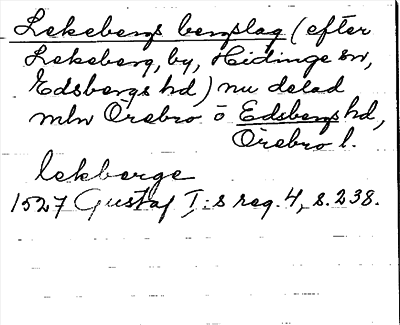 Lekebergs bergslag (efter
Lekeberg, by, Hidinge sn,
Edsbergs hd) nu delad
mln Örebro o Edsbergs hd,
Örebro l.
lekberge
1527 Gustaf I:s reg. 4, s. 238.